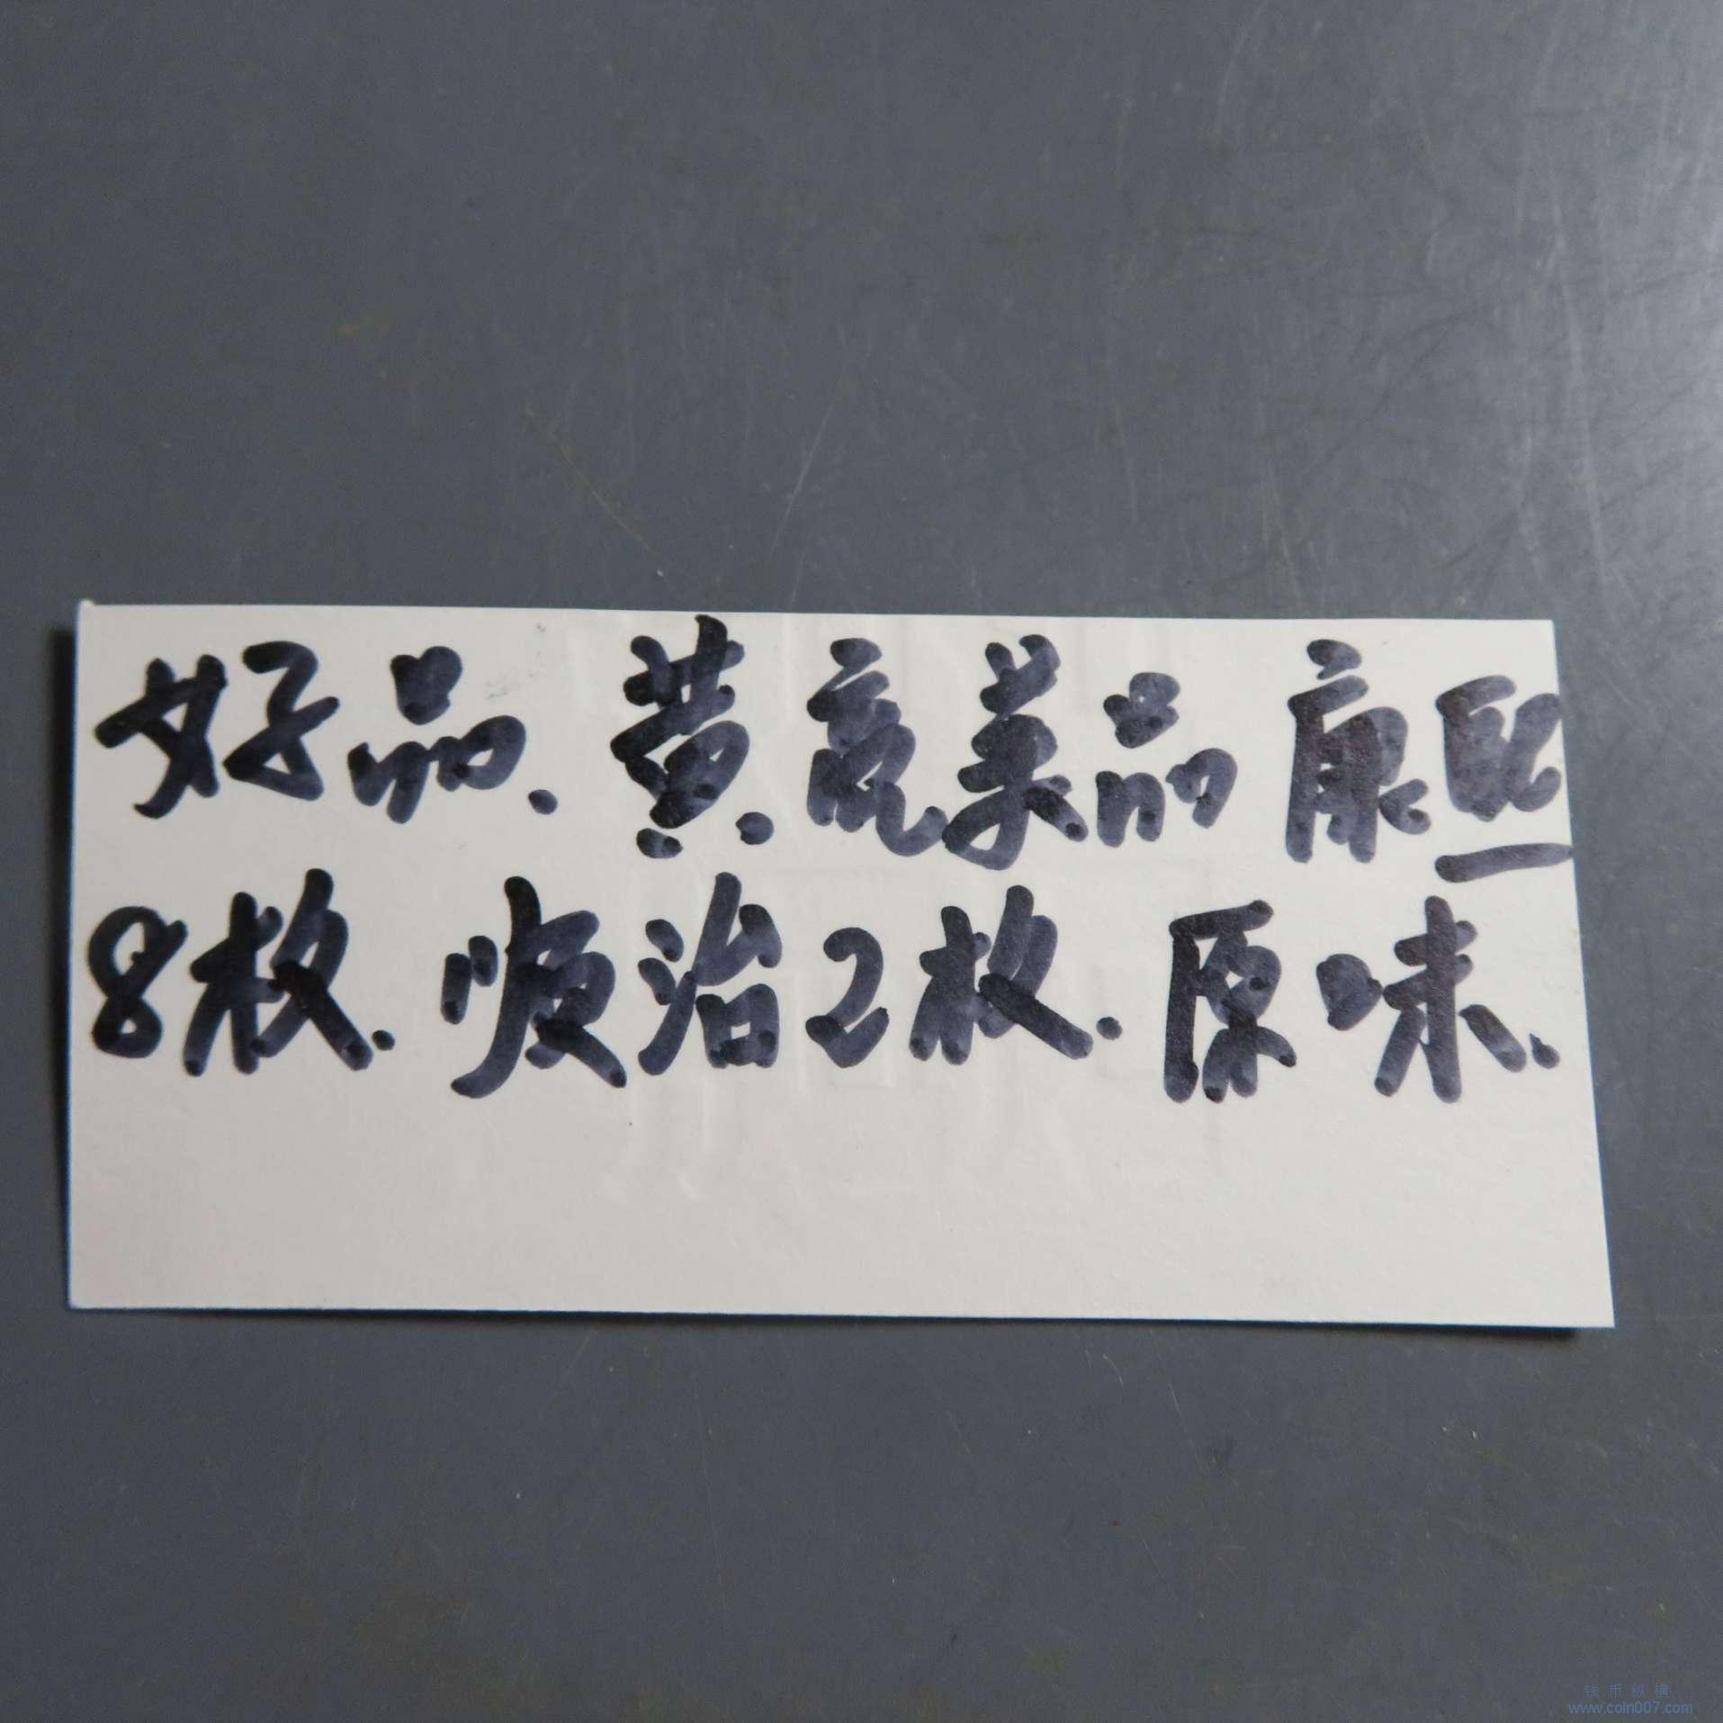 好品、黄亮美品 康熙
8枚. 顺治2枚. 原味.
钱币纵横
www.coin007.com